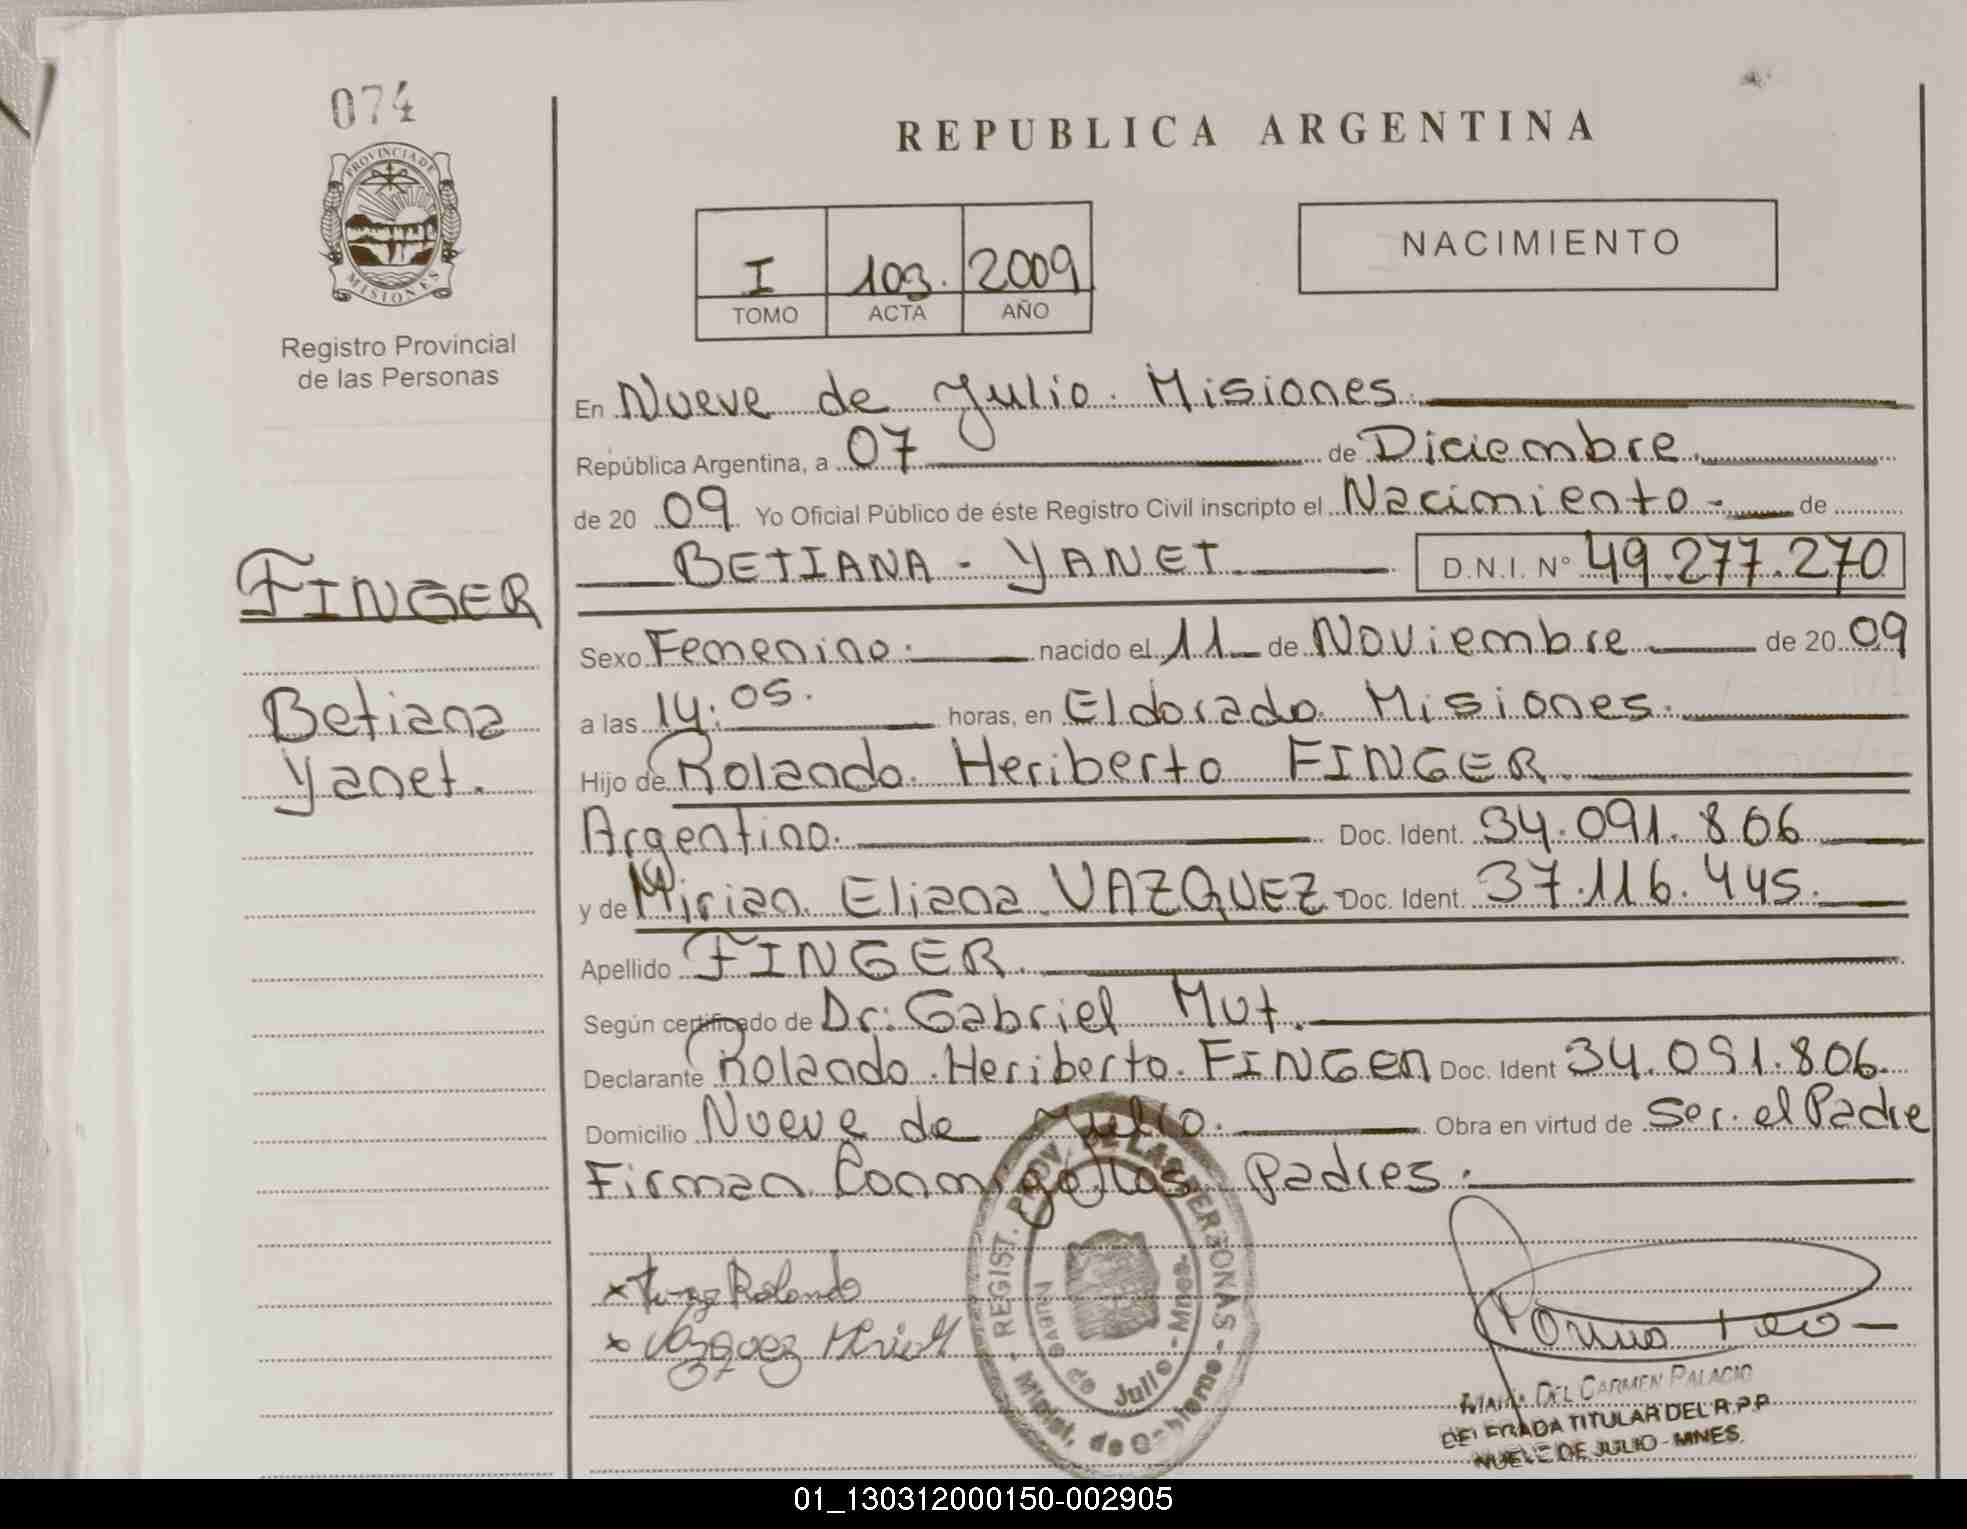 074
PROVINCIA DE
MISIONES
Registro Provincial
de las Personas
REPUBLICA ARGENTINA
I 103. 2009
TOMO ACTA AÑO
NACIMIENTO
En Nueve de Julio. Misiones.
República Argentina, a 07 de Diciembre.
de 20 09 Yo Oficial Público de éste Registro Civil inscripto el Nacimiento - de
BETIANA - YANET. D.N.I. N° 49.277.270
FINGER
Betiana
Yanet.
Sexo Femenino. nacido el 11 de Noviembre de 20 09
a las 14:05. horas, en Eldorado Misiones.
Hijo de Rolando Heriberto FINGER.
Argentino. Doc. Ident. 34.091.806
y de Mirian Eliana VAZQUEZ- Doc. Ident. 37.116.445.
Apellido FINGER.
Según certificado de Dr: Gabriel Mut.
Declarante Rolando Heriberto FINGER Doc. Ident 34.091.806.
Domicilio Nueve de Julio. Obra en virtud de Ser el Padre
Firman Conmigo los Padres.
Rolando
Vazquez
REGIST. PROV. DE LAS PERSONAS -
Minist. de Gobierno -
Nueve de Julio - Mnes.
MARIA DEL CARMEN PALACIO
DELEGADA TITULAR DEL R.P.P
NUEVE DE JULIO - MNES.
01_130312000150-002905